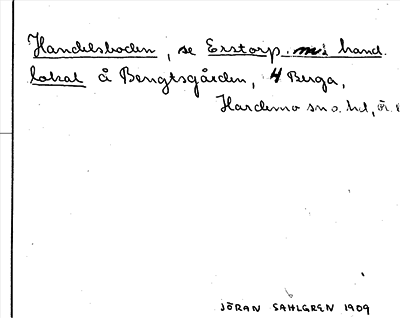 Handelsboden, se Erstorp. m. hand.
lokal å Bengtsgården, 4 Berga,
Hardemo sn o. hd, Ör.
JÖRAN SAHLGREN 1909